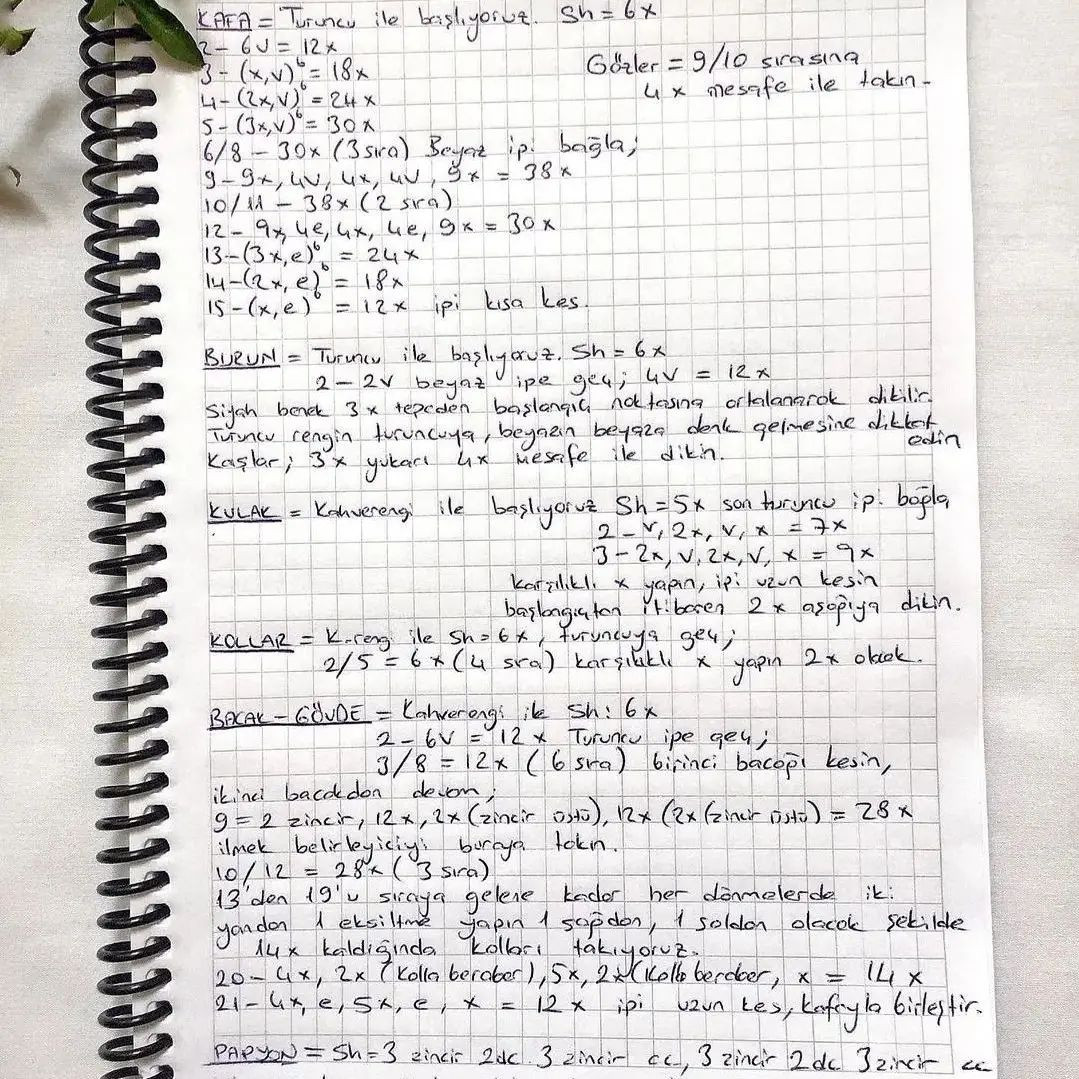 KAFA = Turuncu ile başlıyoruz. Sh = 6x
2 - 6V = 12x
3 - (x,v)⁶ = 18x
Gözler = 9/10 sırasına
4 x mesafe ile takın -
4 - (2x,v)⁶ = 24x
5 - (3x,v)⁶ = 30x
6/8 - 30x (3 sıra) Beyaz ipi bağla;
9 - 9x, 4v, 4x, 4v, 9x = 38x
10/11 - 38x (2 sıra)
12 - 9x, 4e, 4x, 4e, 9x = 30x
13 - (3x,e)⁶ = 24x
14 - (2x,e)⁶ = 18x
15 - (x,e)⁶ = 12x ipi kısa kes.
BURUN = Turuncu ile başlıyoruz. Sh = 6x
2 - 2v beyaz ipe geç; 4v = 12x
Siyah benek 3x tepeden başlangıç noktasına ortalanarak dikilir.
Turuncu rengin turuncuya, beyazın beyaza denk gelmesine dikkat
edin
Kaşlar; 3x yukarı 4x mesafe ile dikin.
KULAK = Kahverengi ile başlıyoruz Sh = 5x son turuncu ipi bağla,
2 - v, 2x, v, x = 7x
3 - 2x, v, 2x, v, x = 9x
karşılıklı x yapın, ipi uzun kesin
başlangıçtan itibaren 2x aşağıya dikin.
KOLLAR = K.rengi ile Sh = 6x, turuncuya geç;
2/5 = 6x (4 sıra) karşılıklı x yapın 2x olacak.
BACAK - GÖVDE = Kahverengi ile Sh: 6x
2 - 6v = 12x Turuncu ipe geç;
3/8 = 12x (6 sıra) birinci bacağı kesin,
ikinci bacakdan devam;
9 = 2 zincir, 12x, 2x (zincir üstü), 12x (2x (zincir üstü) = 28x
ilmek belirleyiciyi buraya takın.
10/12 = 28x (3 sıra)
13'den 19'u sıraya gelene kadar her dönmelerde iki
yandan 1 eksiltme yapın 1 sağdan, 1 soldan olacak şekilde
14x kaldığında kolları takıyoruz.
20 - 4x, 2x (Kolla beraber), 5x, 2x (Kolla beraber, x = 14x
21 - 4x, e, 5x, e, x = 12x ipi uzun kes, kafayla birleştir.
PAPYON = Sh = 3 zincir 2dc 3 zincir cc, 3 zincir 2 dc 3 zincir cc